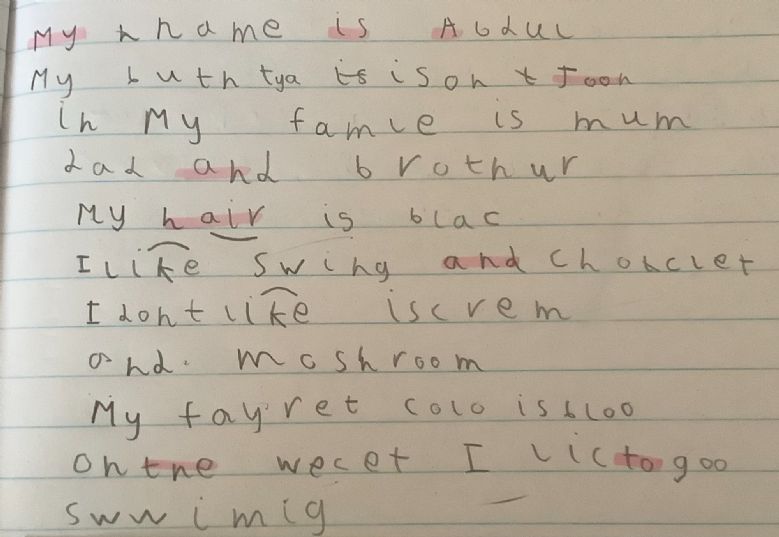 My n name is Abdul
My buthtya is is on t Joon
in My famle is mum
dad and brothur
My hair is blac
I like swing and chohclet
I dont like iscrem
and. moshroom
My fayret colo is bloo
on the wecet I lic to goo
swwimig